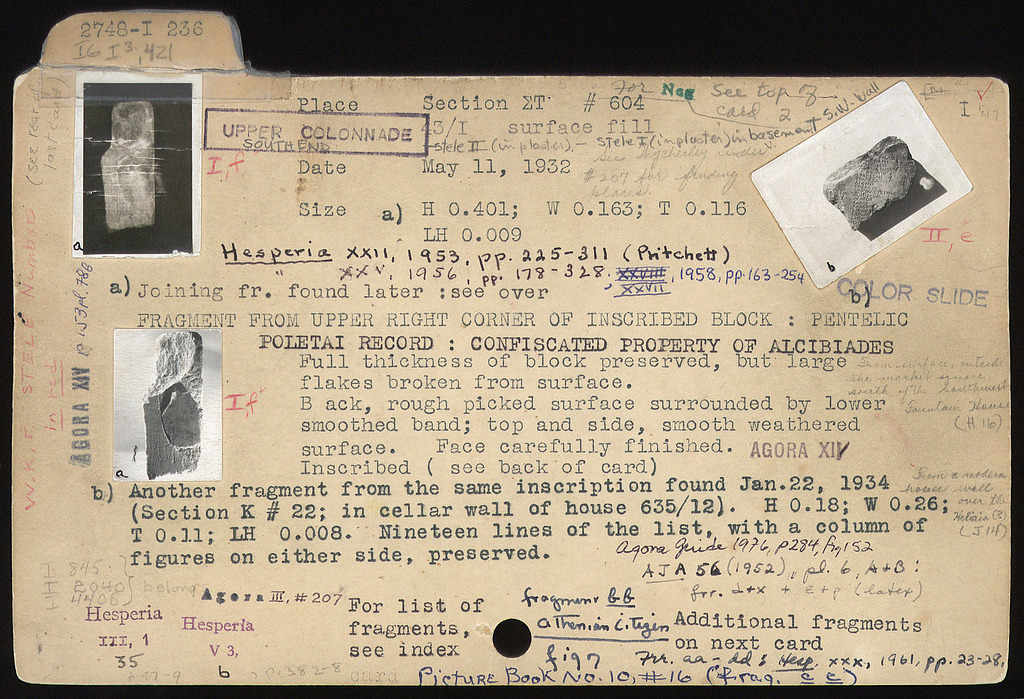 2748-I 236
IG I³, 421
Place Section ΣΤ # 604
For Neg See top of card 2
I
UPPER COLONNADE
SOUTH END
43/I surface fill
stele II (in plaster) — stele I (in plaster) in basement S.W. Wall
See Wycherley under
#207 for finding
places
Date May 11, 1932
I, f
Size a) H 0.401; W 0.163; T 0.116
LH 0.009
a
b
II, e
Hesperia XXII, 1953, pp. 225-311 (Pritchett)
" XXV, 1956, pp. 178-328, XXVIII, 1958, pp. 163-254
XXVII
a) Joining fr. found later : see over
b)
COLOR SLIDE
FRAGMENT FROM UPPER RIGHT CORNER OF INSCRIBED BLOCK : PENTELIC
POLETAI RECORD : CONFISCATED PROPERTY OF ALCIBIADES
Full thickness of block preserved, but large
flakes broken from surface.
B ack, rough picked surface surrounded by lower
smoothed band; top and side, smooth weathered
surface. Face carefully finished. AGORA XIV
Inscribed ( see back of card)
From surface, outside
the market square,
south of the Southwest
Fountain House
(H 16)
I, f
a
AGORA XIV
W. K. P. STELE Numbers
in red
b) Another fragment from the same inscription found Jan.22, 1934
(Section K # 22; in cellar wall of house 635/12). H 0.18; W 0.26;
T 0.11; LH 0.008. Nineteen lines of the list, with a column of
figures on either side, preserved.
From a modern
house wall
over the
Agora Guide 1976, p 284, fig 152
AJA 56 (1952), pl. 6, A+B:
845
2040 belong
Agora III, #207
Hesperia
III, 1
35
Hesperia
V 3,
b
p. 382-8
For list of
fragments,
see index
card
fragment bb
Athenian Citizen
fig 7
Additional fragments
on next card
Frr. aa-dd: Hesp. XXX, 1961, pp. 23-28,
Picture Book No. 10, #16 (frag. c c)